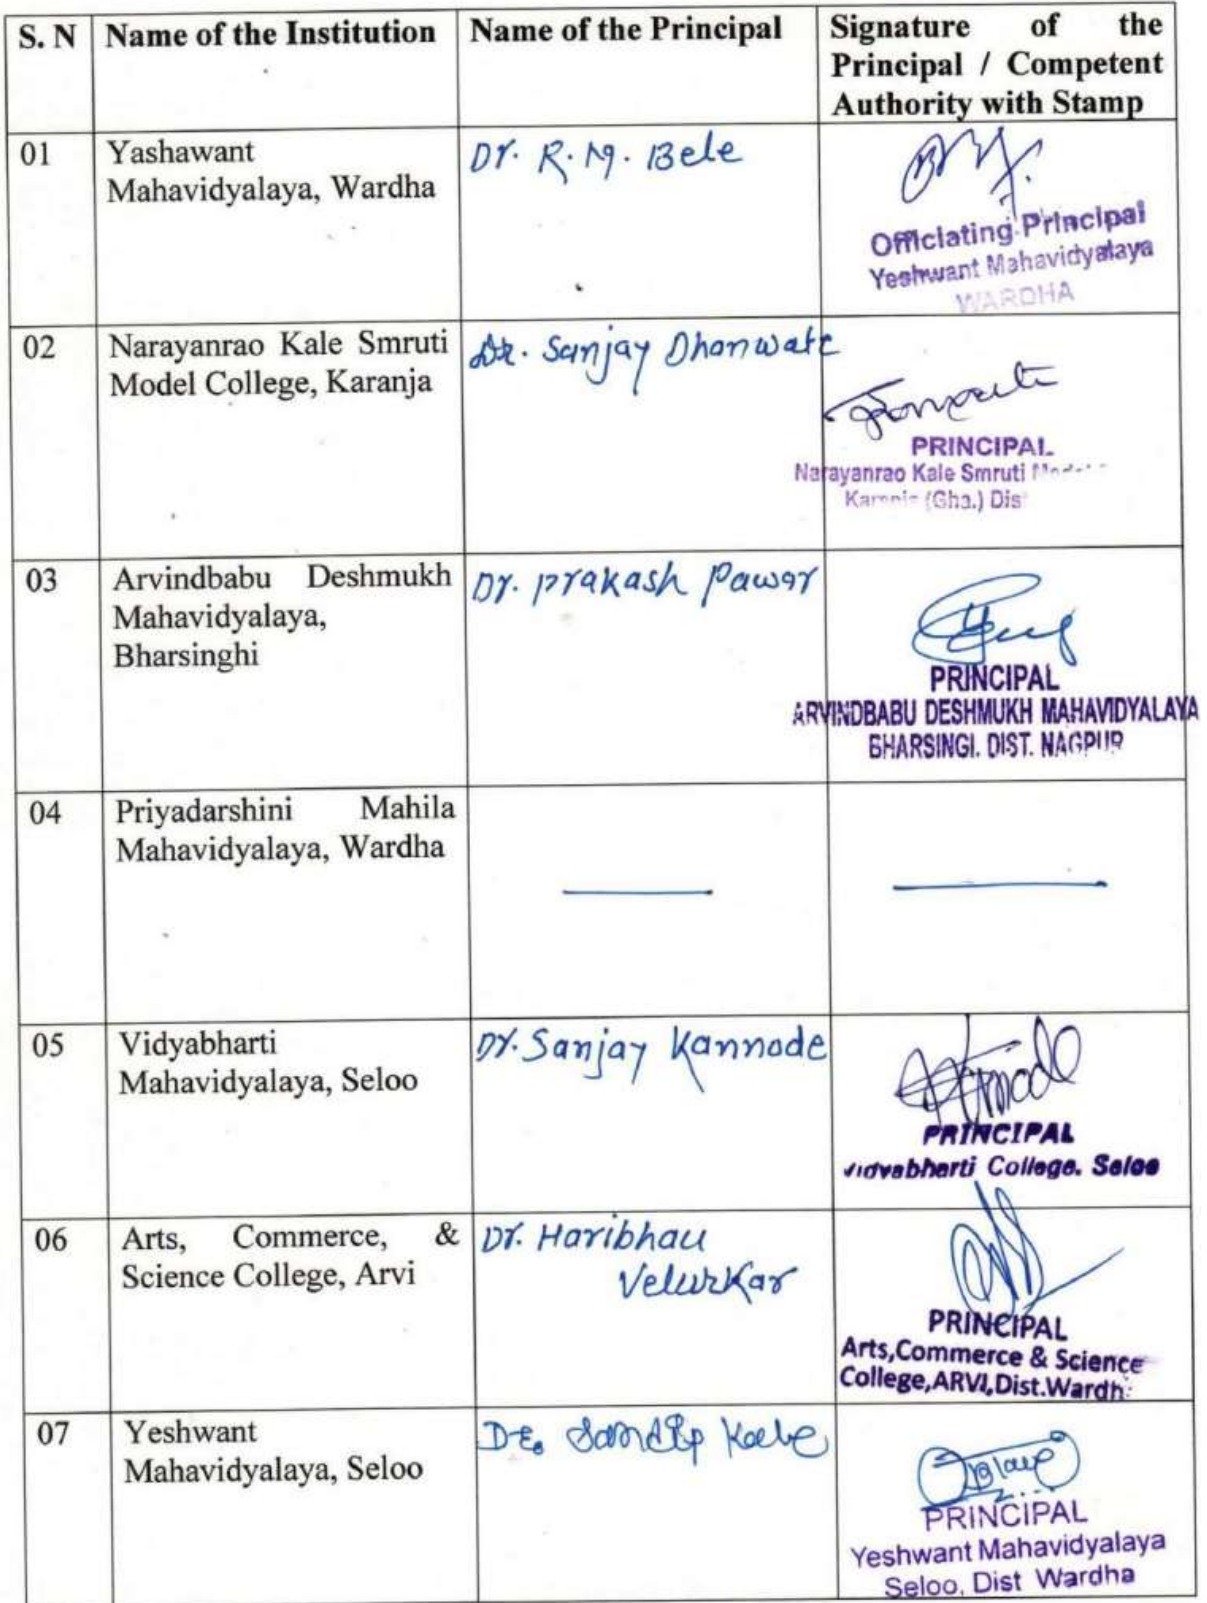 S. N
Name of the Institution
Name of the Principal
Signature of the
Principal / Competent
Authority with Stamp
01
Yashawant
Mahavidyalaya, Wardha
Dr. R. M. Bele
Officiating Principal
Yeshwant Mahavidyalaya
WARDHA
02
Narayanrao Kale Smruti
Model College, Karanja
Dr. Sanjay Dhanwate
PRINCIPAL
Narayanrao Kale Smruti Model
(Gha.) Dis
03
Arvindbabu Deshmukh
Mahavidyalaya,
Bharsinghi
Dr. Prakash Pawar
PRINCIPAL
ARVINDBABU DESHMUKH MAHAVIDYALAYA
BHARSINGI. DIST. NAGPUR
04
Priyadarshini Mahila
Mahavidyalaya, Wardha
05
Vidyabharti
Mahavidyalaya, Seloo
Dr. Sanjay Kannode
PRINCIPAL
Vidyabharti College. Seloo
06
Arts, Commerce, &
Science College, Arvi
Dr. Haribhau
Velurkar
PRINCIPAL
Arts,Commerce & Science
College,ARVI,Dist.Wardh
07
Yeshwant
Mahavidyalaya, Seloo
Dr. Sandip
PRINCIPAL
Yeshwant Mahavidyalaya
Seloo, Dist Wardha